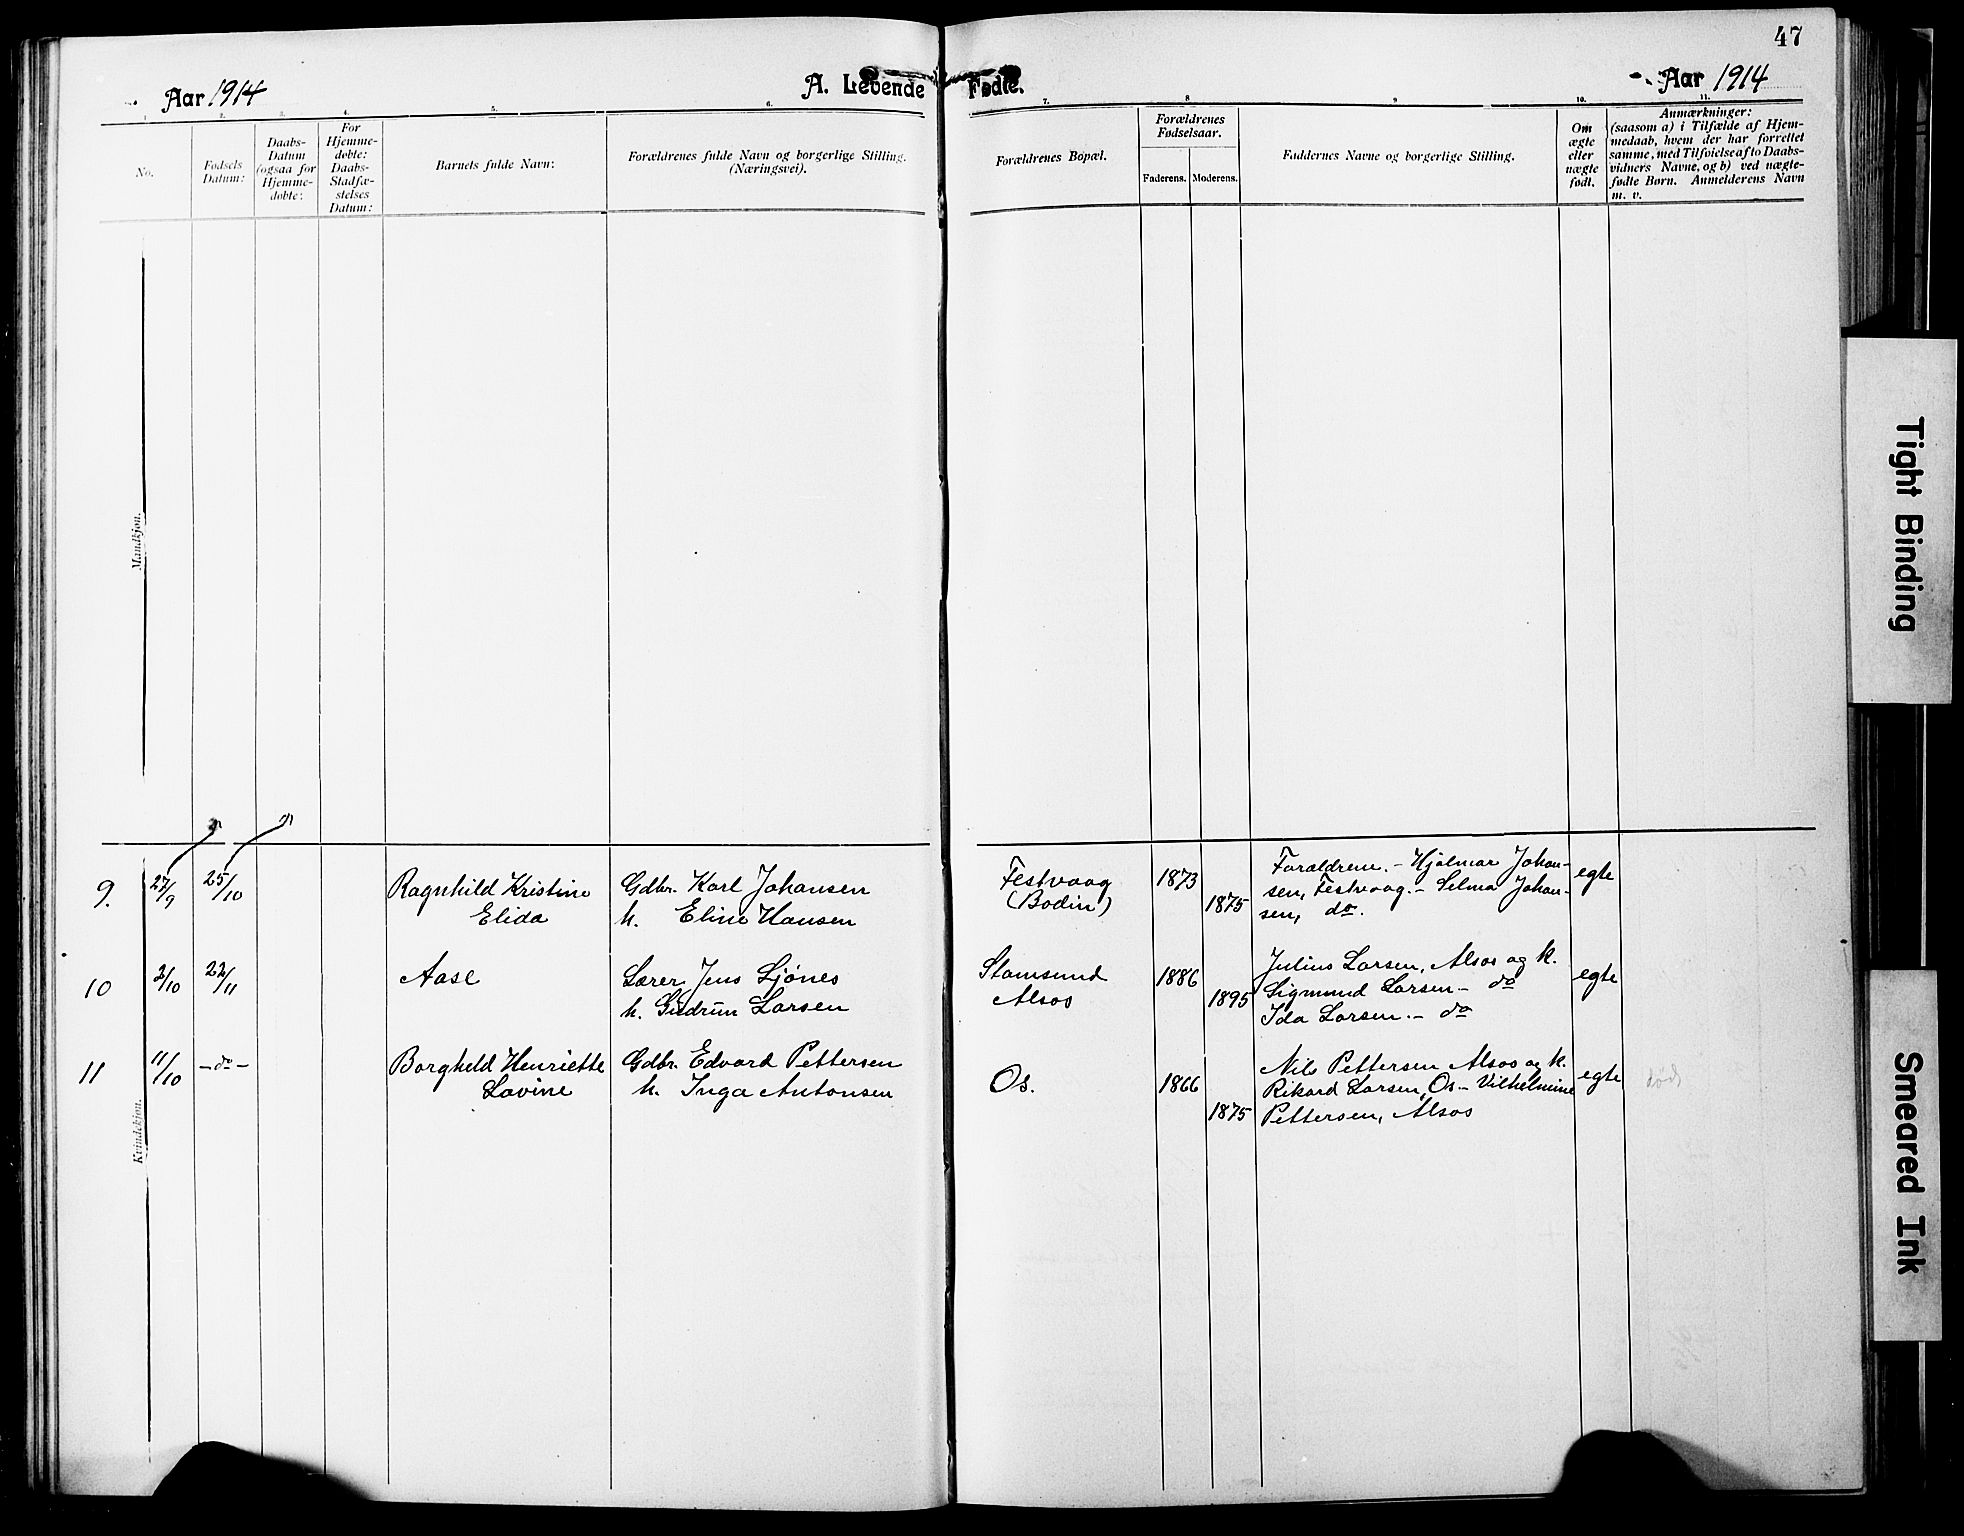 47
Aar 1914
A. Levende Fødte.
Aar 1914
1.
2.
3.
4.
5.
6.
7.
8
9
10.
11.
No.
Fødsels
Datum:
Daabs-
Datum
(ogsaa for
Hjemme-
døbte:
For
Hjemme-
døbte:
Daabs-
Stadfæ-
stelses
Datum:
Barnets fulde Navn:
Forældrenes fulde Navn og borgerlige Stilling.
(Næringsvei).
Forældrenes Bopæl.
Forældrenes
Fødselsaar.
Faderens.
Moderens.
Faddernes Navne og borgerlige Stilling.
Om
ægte
eller
nægte
født.
Anmærkninger:
(saasom a) i Tilfælde af Hjem-
medaab, hvem der har forrettet
samme, med Tilføielse af to Daabs-
vidners Navne, og b) ved nægte-
fødte Børn. Anmelderens Navn
m. v.
Mandkjøn.
Kvindekjøn.
9.
27/9
25/10
Ragnhild Kristine
Elida
Gdbr. Karl Johansen
h. Eline Hansen
Festvaag
(Bodin)
1873
1875
Forældrene. - Hjalmar Johan-
sen, Festvaag. - Selma Johan-
sen, do.
egte
10
2/10
22/11
Aase
Lærer Jens Sjönes
h. Gudrun Larsen
Stamsund
Alsos
1886
1895
Julius Larsen, Alsos og k.
Sigmund Larsen - do
Ida Larsen. - do
egte
11
11/10
- do -
Borghild Henriette
Lovine
Gdbr. Edvard Pettersen
h. Inga Antonsen
Os.
1866
1875
Nils Pettersen Alsos og k.
Rikard Larsen, Os - Vilhelmine
Pettersen, Alsos
egte
död
Tight Binding
Smeared Ink